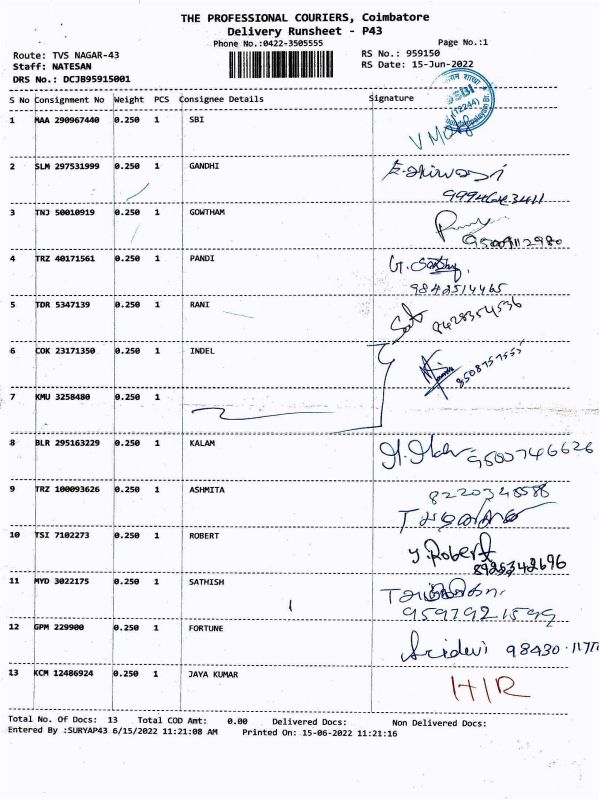 THE PROFESSIONAL COURIERS, Coimbatore
Delivery Runsheet - P43
Phone No.:0422-3505555
Page No.:1
Route: TVS NAGAR-43
RS No.: 959150
Staff: NATESAN
RS Date: 15-Jun-2022
DRS No.: DCJB95915001
SBI
(12244)
S No Consignment No Weight PCS Consignee Details Signature
1 MAA 290967440 0.250 1 SBI
2 SLM 297531999 0.250 1 GANDHI
3 TNJ 50010919 0.250 1 GOWTHAM
4 TRZ 40171561 0.250 1 PANDI
9842514465
5 TDR 5347139 0.250 1 RANI
9428354536
6 COK 23171350 0.250 1 INDEL
8508757555
7 KMU 3258480 0.250 1
8 BLR 295163229 0.250 1 KALAM
9500746626
9 TRZ 100093626 0.250 1 ASHMITA
10 TSI 7102273 0.250 1 ROBERT Y. Robert
8925342696
11 MYD 3022175 0.250 1 SATHISH
9597921599
12 GPM 229900 0.250 1 FORTUNE Sridevi
13 KCM 12486924 0.250 1 JAYA KUMAR HIR
Total No. Of Docs: 13 Total COD Amt: 0.00 Delivered Docs: Non Delivered Docs:
Entered By :SURYAP43 6/15/2022 11:21:08 AM Printed On: 15-06-2022 11:21:16